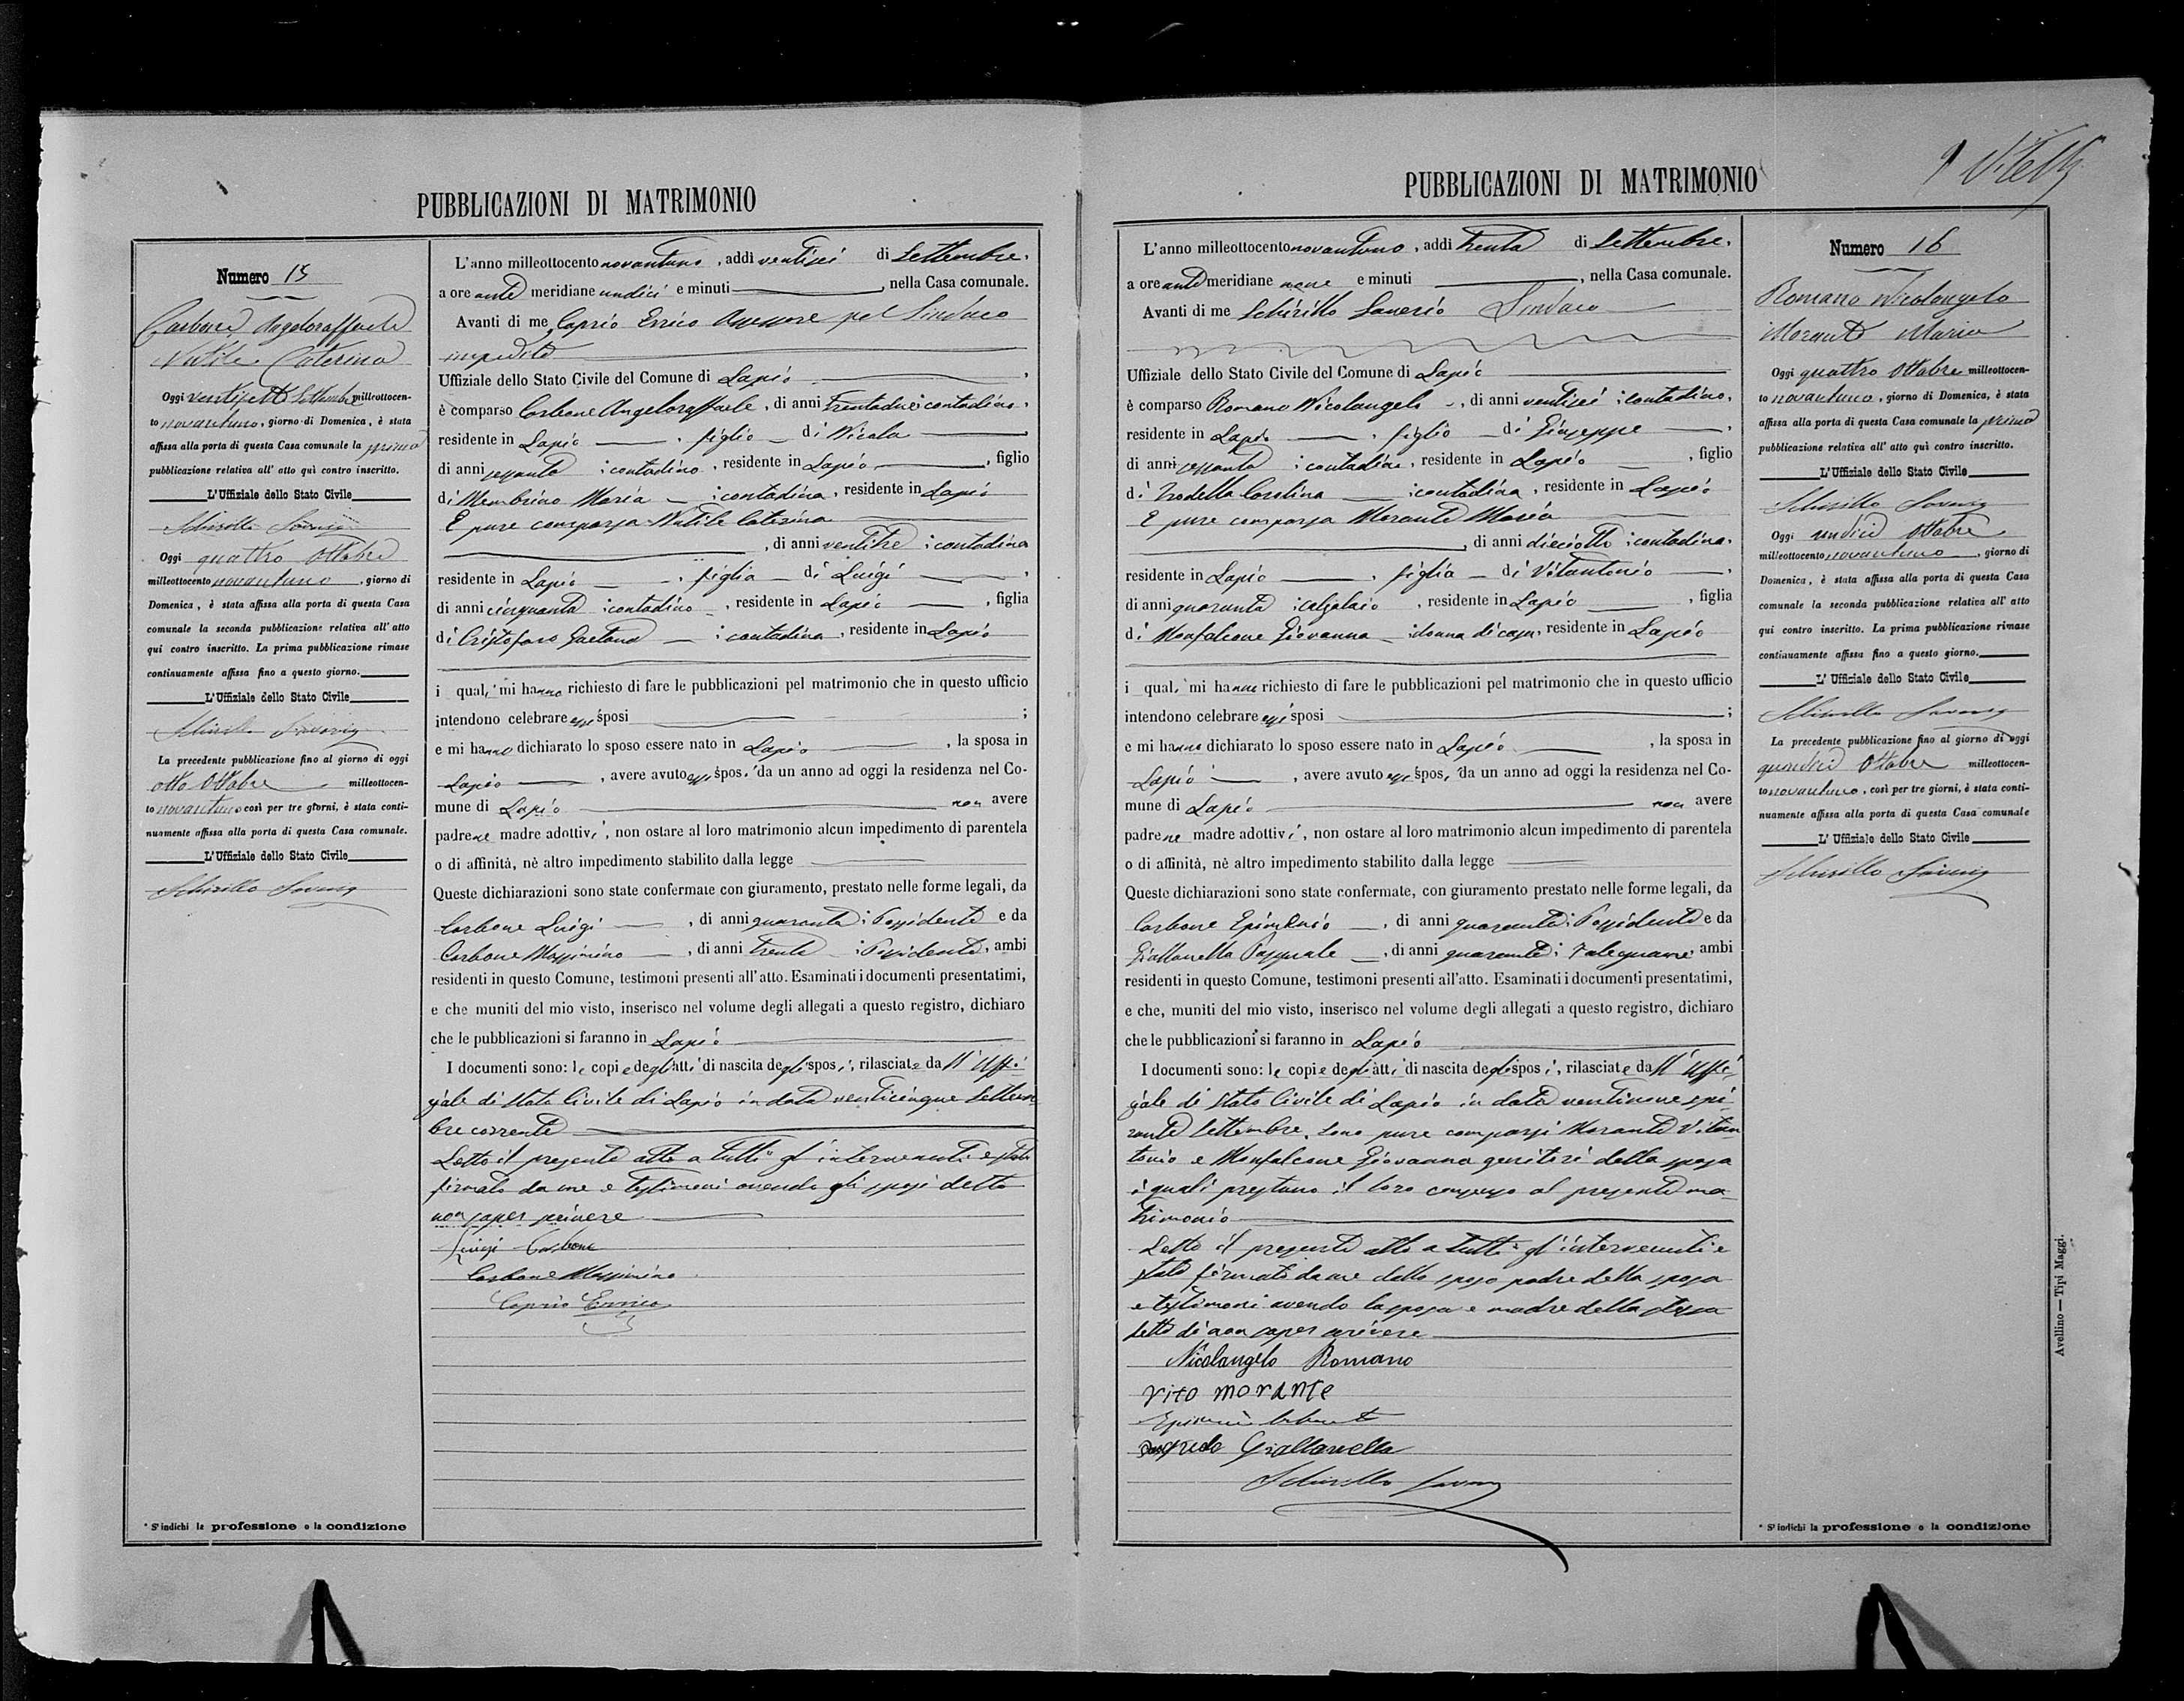 PUBBLICAZIONI DI MATRIMONIO
Numero 15
Carbone Angeloraffaele
Nutile Caterina
Oggi ventisette Settembre milleottocen-
to novantuno, giorno di Domenica, è stata
affissa alla porta di questa Casa comunale la prima
pubblicazione relativa all' atto quì contro inscritto.
L'Uffiziale dello Stato Civile
Schirillo Saverio
Oggi quattro Ottobre
milleottocento novantuno, giorno di
Domenica, è stata affissa alla porta di questa Casa
comunale la seconda pubblicazione relativa all' atto
qui contro inscritto. La prima pubblicazione rimase
continuamente affissa fino a questo giorno.
L'Uffiziale dello Stato Civile
Schirillo Saverio
La precedente pubblicazione fino al giorno di oggi
otto Ottobre milleottocen-
to novantuno così per tre giorni, è stata conti-
nuamente affissa alla porta di questa Casa comunale.
L'Uffiziale dello Stato Civile
Schirillo Saverio
* S'indichi la professione o la condizione
L'anno milleottocento novantuno, addì ventisei di Settembre,
a ore ante meridiane undici e minuti, nella Casa comunale.
Avanti di me Caprio Errico Assessore pel Sindaco
impedito
Uffiziale dello Stato Civile del Comune di Lapio,
è comparso Carbone Angeloraffaele, di anni trentadue; contadino,
residente in Lapio, figlio di Nicola,
di anni sessanta; contadino, residente in Lapio, figlio
di Membrino Maria; contadina, residente in Lapio
E pure comparsa Nutile Caterina
, di anni ventitre; contadina
residente in Lapio, figlia di Luigi,
di anni cinquanta; contadino, residente in Lapio, figlia
di Cristofaro Gaetana; contadina, residente in Lapio
i quali mi hanno richiesto di fare le pubblicazioni pel matrimonio che in questo ufficio
intendono celebrare essi sposi;
e mi hanno dichiarato lo sposo essere nato in Lapio, la sposa in
Lapio, avere avuto essi sposi da un anno ad oggi la residenza nel Co-
mune di Lapio non avere
padre ne madre adottivi, non ostare al loro matrimonio alcun impedimento di parentela
o di affinità, nè altro impedimento stabilito dalla legge
Queste dichiarazioni sono state confermate con giuramento, prestato nelle forme legali, da
Carbone Luigi, di anni quaranta; Possidente e da
Carbone Massimino, di anni trenta; Possidente, ambi
residenti in questo Comune, testimoni presenti all'atto. Esaminati i documenti presentatimi,
e che muniti del mio visto, inserisco nel volume degli allegati a questo registro, dichiaro
che le pubblicazioni si faranno in Lapio
I documenti sono: le copie degli atti di nascita degli sposi, rilasciate dall'Uffi-
ziale di Stato Civile di Lapio in data venticinque Settem-
bre corrente
Letto il presente atto a tutti gl'intervenuti è stato
firmato da me e testimoni avendo gli sposi detto
non saper scrivere
Luigi Carbone
Carbone Massimino
Caprio Errico
PUBBLICAZIONI DI MATRIMONIO
9
L'anno milleottocento novantuno, addì trenta di Settembre,
a ore ante meridiane nove e minuti, nella Casa comunale.
Avanti di me Schirillo Saverio Sindaco
Uffiziale dello Stato Civile del Comune di Lapio
è comparso Romano Nicolangelo, di anni ventisei; contadino,
residente in Lapio, figlio di Giuseppe,
di anni sessanta; contadino, residente in Lapio, figlio
di Trodella Carolina; contadina, residente in Lapio
E pure comparsa Morante Maria
, di anni dieciotto; contadina,
residente in Lapio, figlia di Vitantonio,
di anni quaranta; calzolaio, residente in Lapio, figlia
di Monfalcone Giovanna; donna di casa, residente in Lapio
i quali mi hanno richiesto di fare le pubblicazioni pel matrimonio che in questo ufficio
intendono celebrare essi sposi;
e mi hanno dichiarato lo sposo essere nato in Lapio, la sposa in
Lapio, avere avuto essi sposi da un anno ad oggi la residenza nel Co-
mune di Lapio non avere
padre ne madre adottivi, non ostare al loro matrimonio alcun impedimento di parentela
o di affinità, nè altro impedimento stabilito dalla legge
Queste dichiarazioni sono state confermate, con giuramento prestato nelle forme legali, da
Carbone Epimenio, di anni quaranta; Possidente e da
Giallanella Pasquale, di anni quaranta; Falegname ambi
residenti in questo Comune, testimoni presenti all'atto. Esaminati i documenti presentatimi,
e che, muniti del mio visto, inserisco nel volume degli allegati a questo registro, dichiaro
che le pubblicazioni si faranno in Lapio
I documenti sono: le copie degli atti di nascita degli sposi, rilasciate dall'Uffi-
ziale di Stato Civile di Lapio in data ventinove spi-
rante Settembre. Sono pure comparsi Morante Vitan-
tonio e Monfalcone Giovanna genitori della sposa
i quali prestano il loro consenso al presente ma-
trimonio
Letto il presente atto a tutti gl'intervenuti è
stato firmato da me dallo sposo padre della sposa
e testimoni avendo la sposa e madre della stessa
detto di non saper scrivere
Nicolangelo Romano
Vito Morante
Giallanella
Schirillo Saverio
Numero 16
Romano Nicolangelo
Morante Maria
Oggi quattro Ottobre milleottocen-
to novantuno, giorno di Domenica, è stata
affissa alla porta di questa Casa comunale la prima
pubblicazione relativa all' atto quì contro inscritto.
L'Uffiziale dello Stato Civile
Schirillo Saverio
Oggi undici Ottobre
milleottocento novantuno, giorno di
Domenica, è stata affissa alla porta di questa Casa
comunale la seconda pubblicazione relativa all' atto
qui contro inscritto. La prima pubblicazione rimase
continuamente affissa fino a questo giorno.
L' Uffiziale dello Stato Civile
Schirillo Saverio
La precedente pubblicazione fino al giorno di oggi
quindici Ottobre milleottocen-
to novantuno, così per tre giorni, è stata conti-
nuamente affissa alla porta di questa Casa comunale
L' Uffiziale dello Stato Civile
Schirillo Saverio
* S'indichi la professione o la condizione
Avellino — Tipi Maggi.